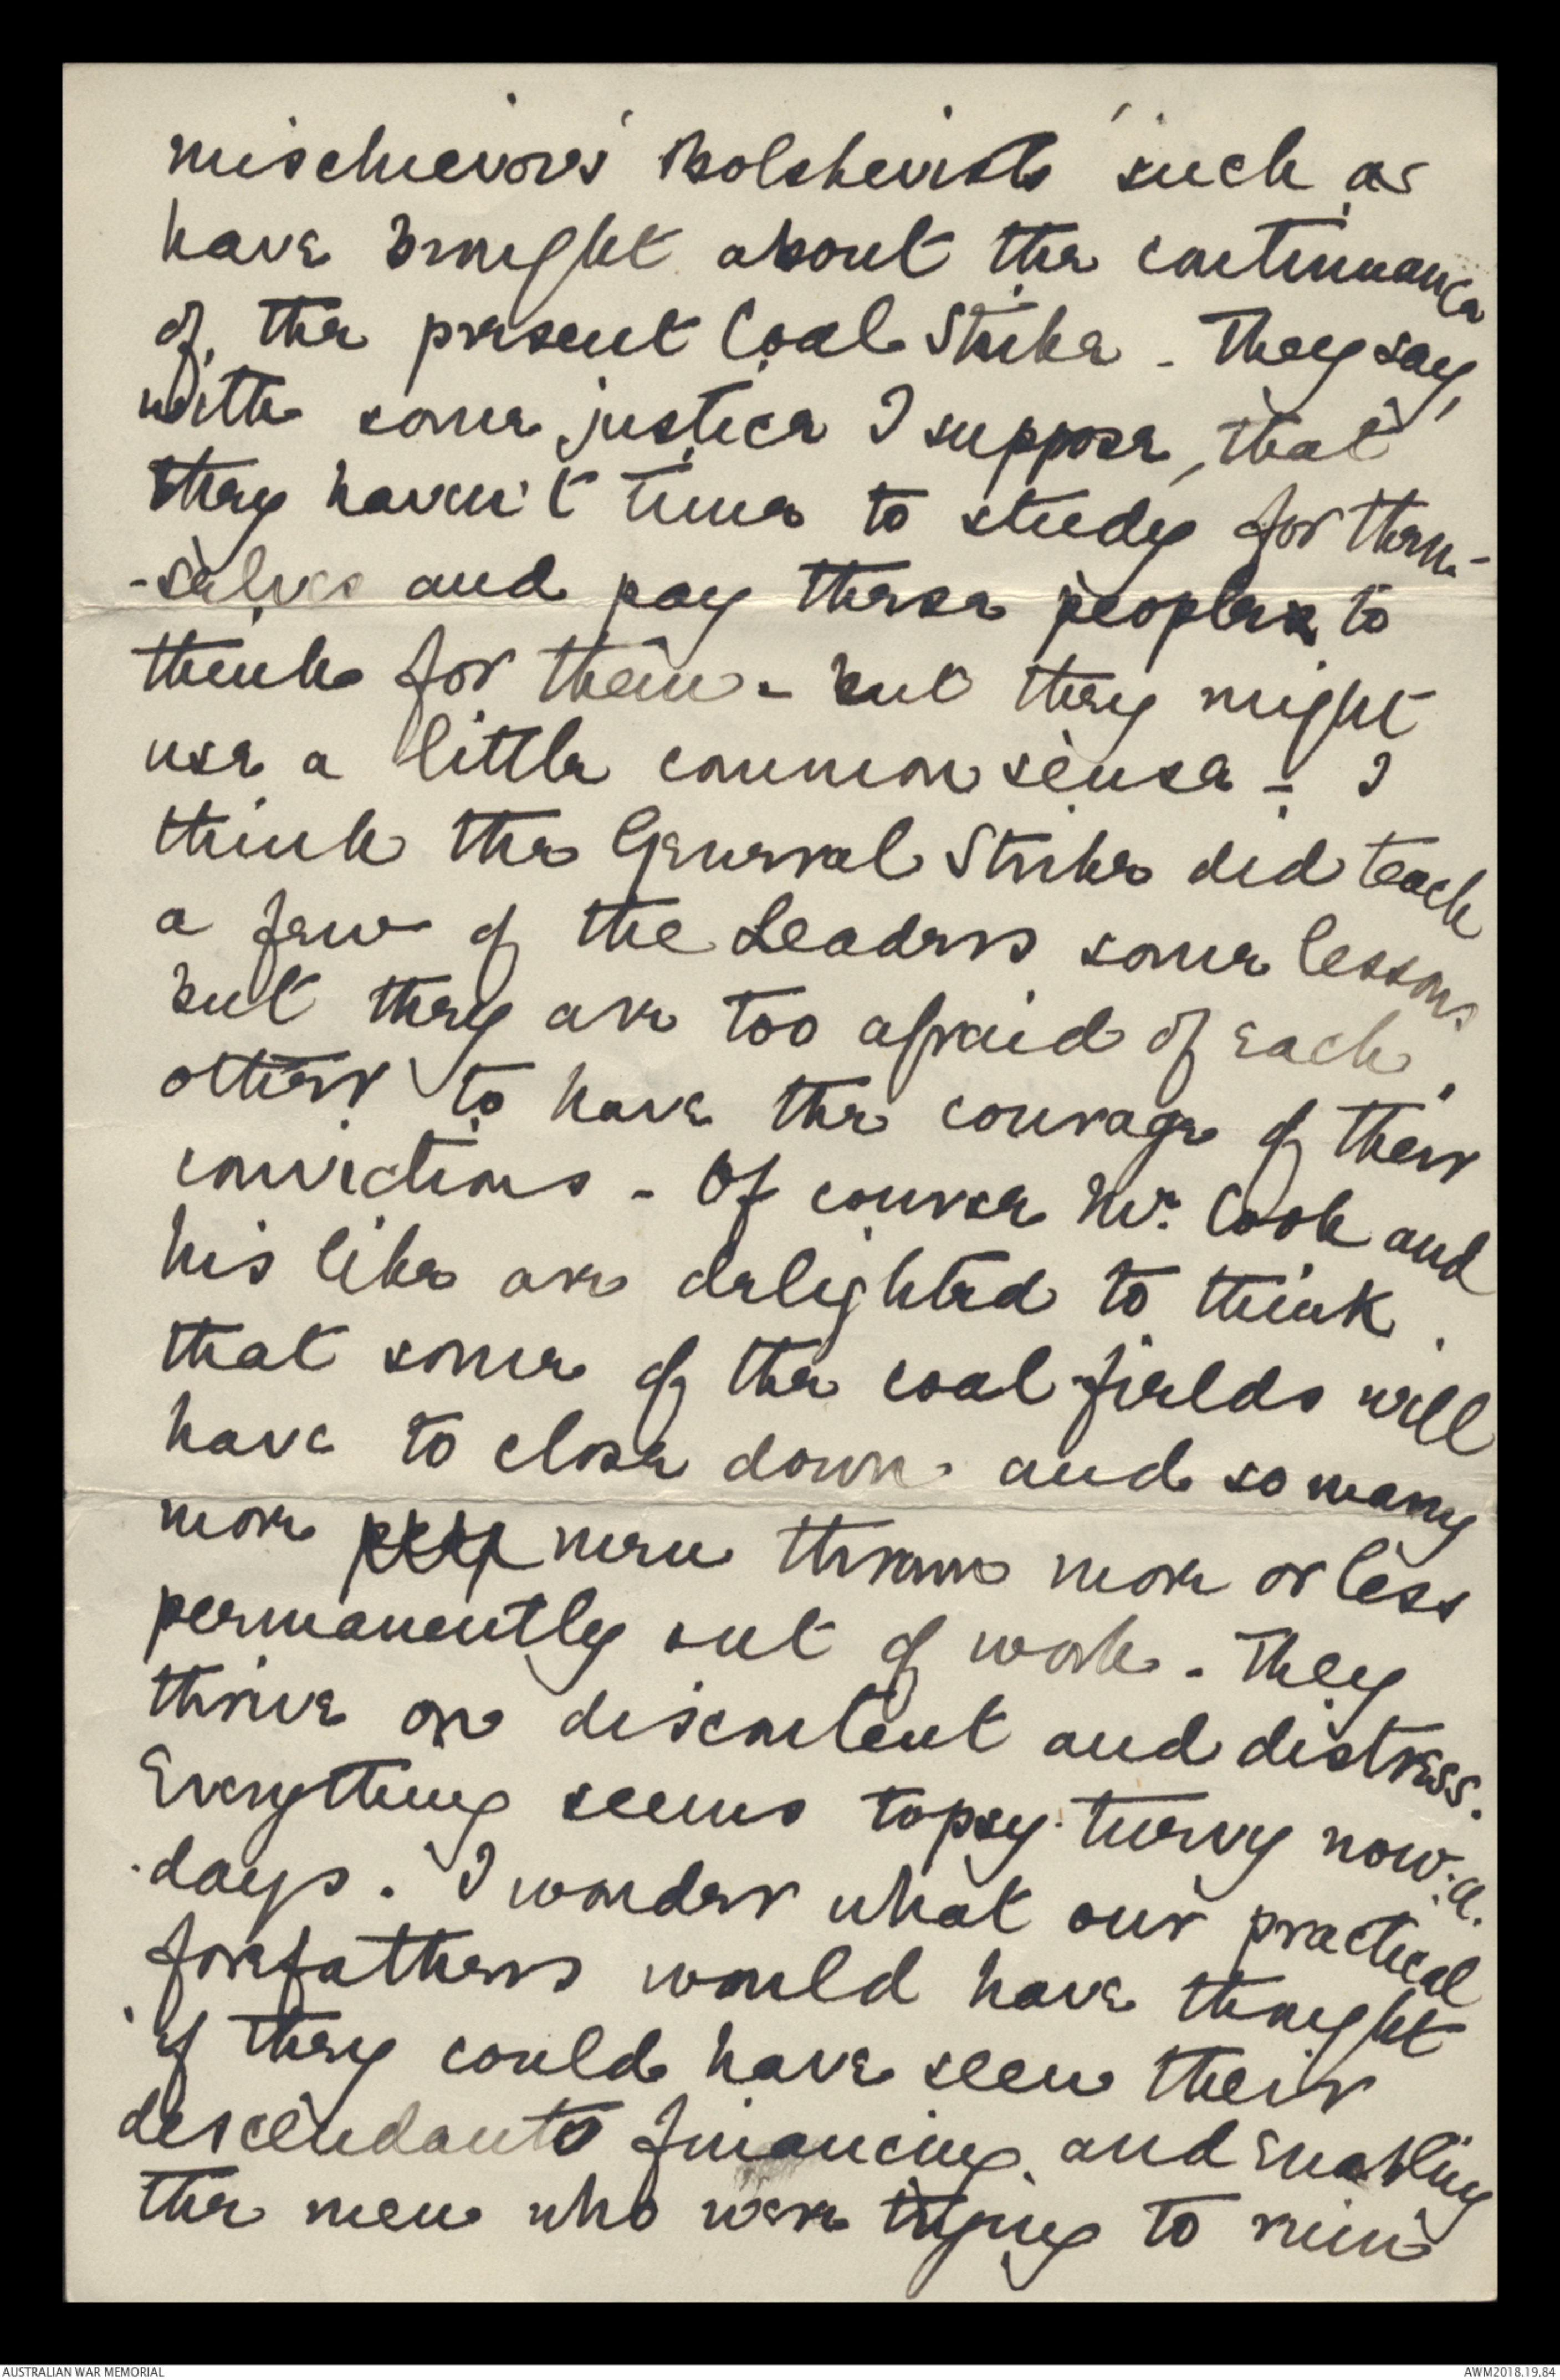 mischievous 'Bolshevists' such as
have brought about the continuance
of the present Coal Strike - They say,
with some justice I suppose, that
they haven't time to study for them-
-selves and pay these people to
think for them - but they might
use a little common sense - I
think the General Strike did teach
a few of the Leaders some lessons
but they are too afraid of each
other to have the courage of their
convictions - Of course Mr. Cook and
his like are delighted to think
that some of the coal-fields will
have to close down and so many
more men thrown more or less
permanently out of work - They
thrive on discontent and distress.
Everything seems topsy-turvy now-a-
-days. I wonder what our practical
forefathers would have thought
if they could have seen their
descendants financing and enabling
the men who were trying to ruin
AUSTRALIAN WAR MEMORIAL
AWM2018.19.84